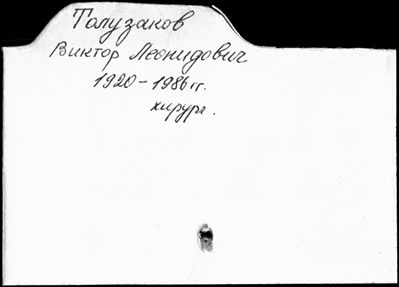 Толузаков
Виктор Леонидович
1920-1986 гг.
хирург.